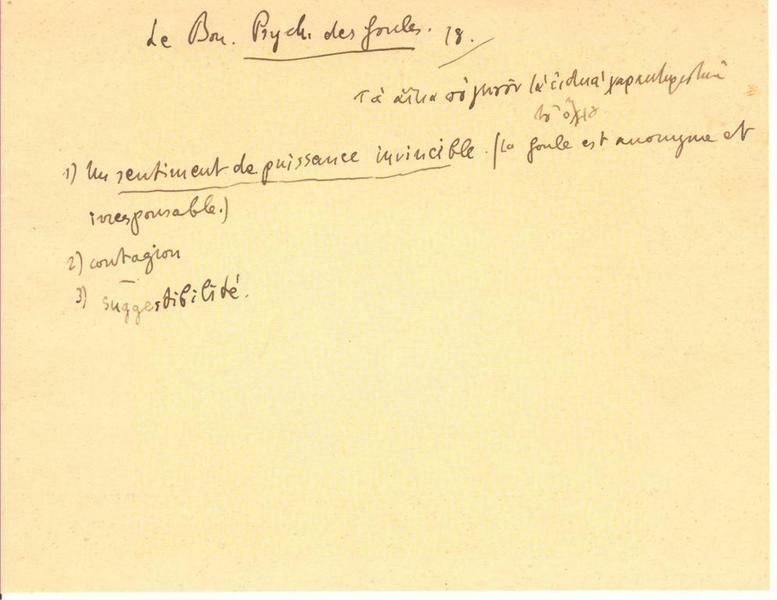 Le Bon. Psych. des foules. 18.
τὰ αἴτια
τοῦ ὄχλου
1) Un sentiment de puissance invincible. (la foule est anonyme et
irresponsable.)
2) contagion
3) suggestibilité.